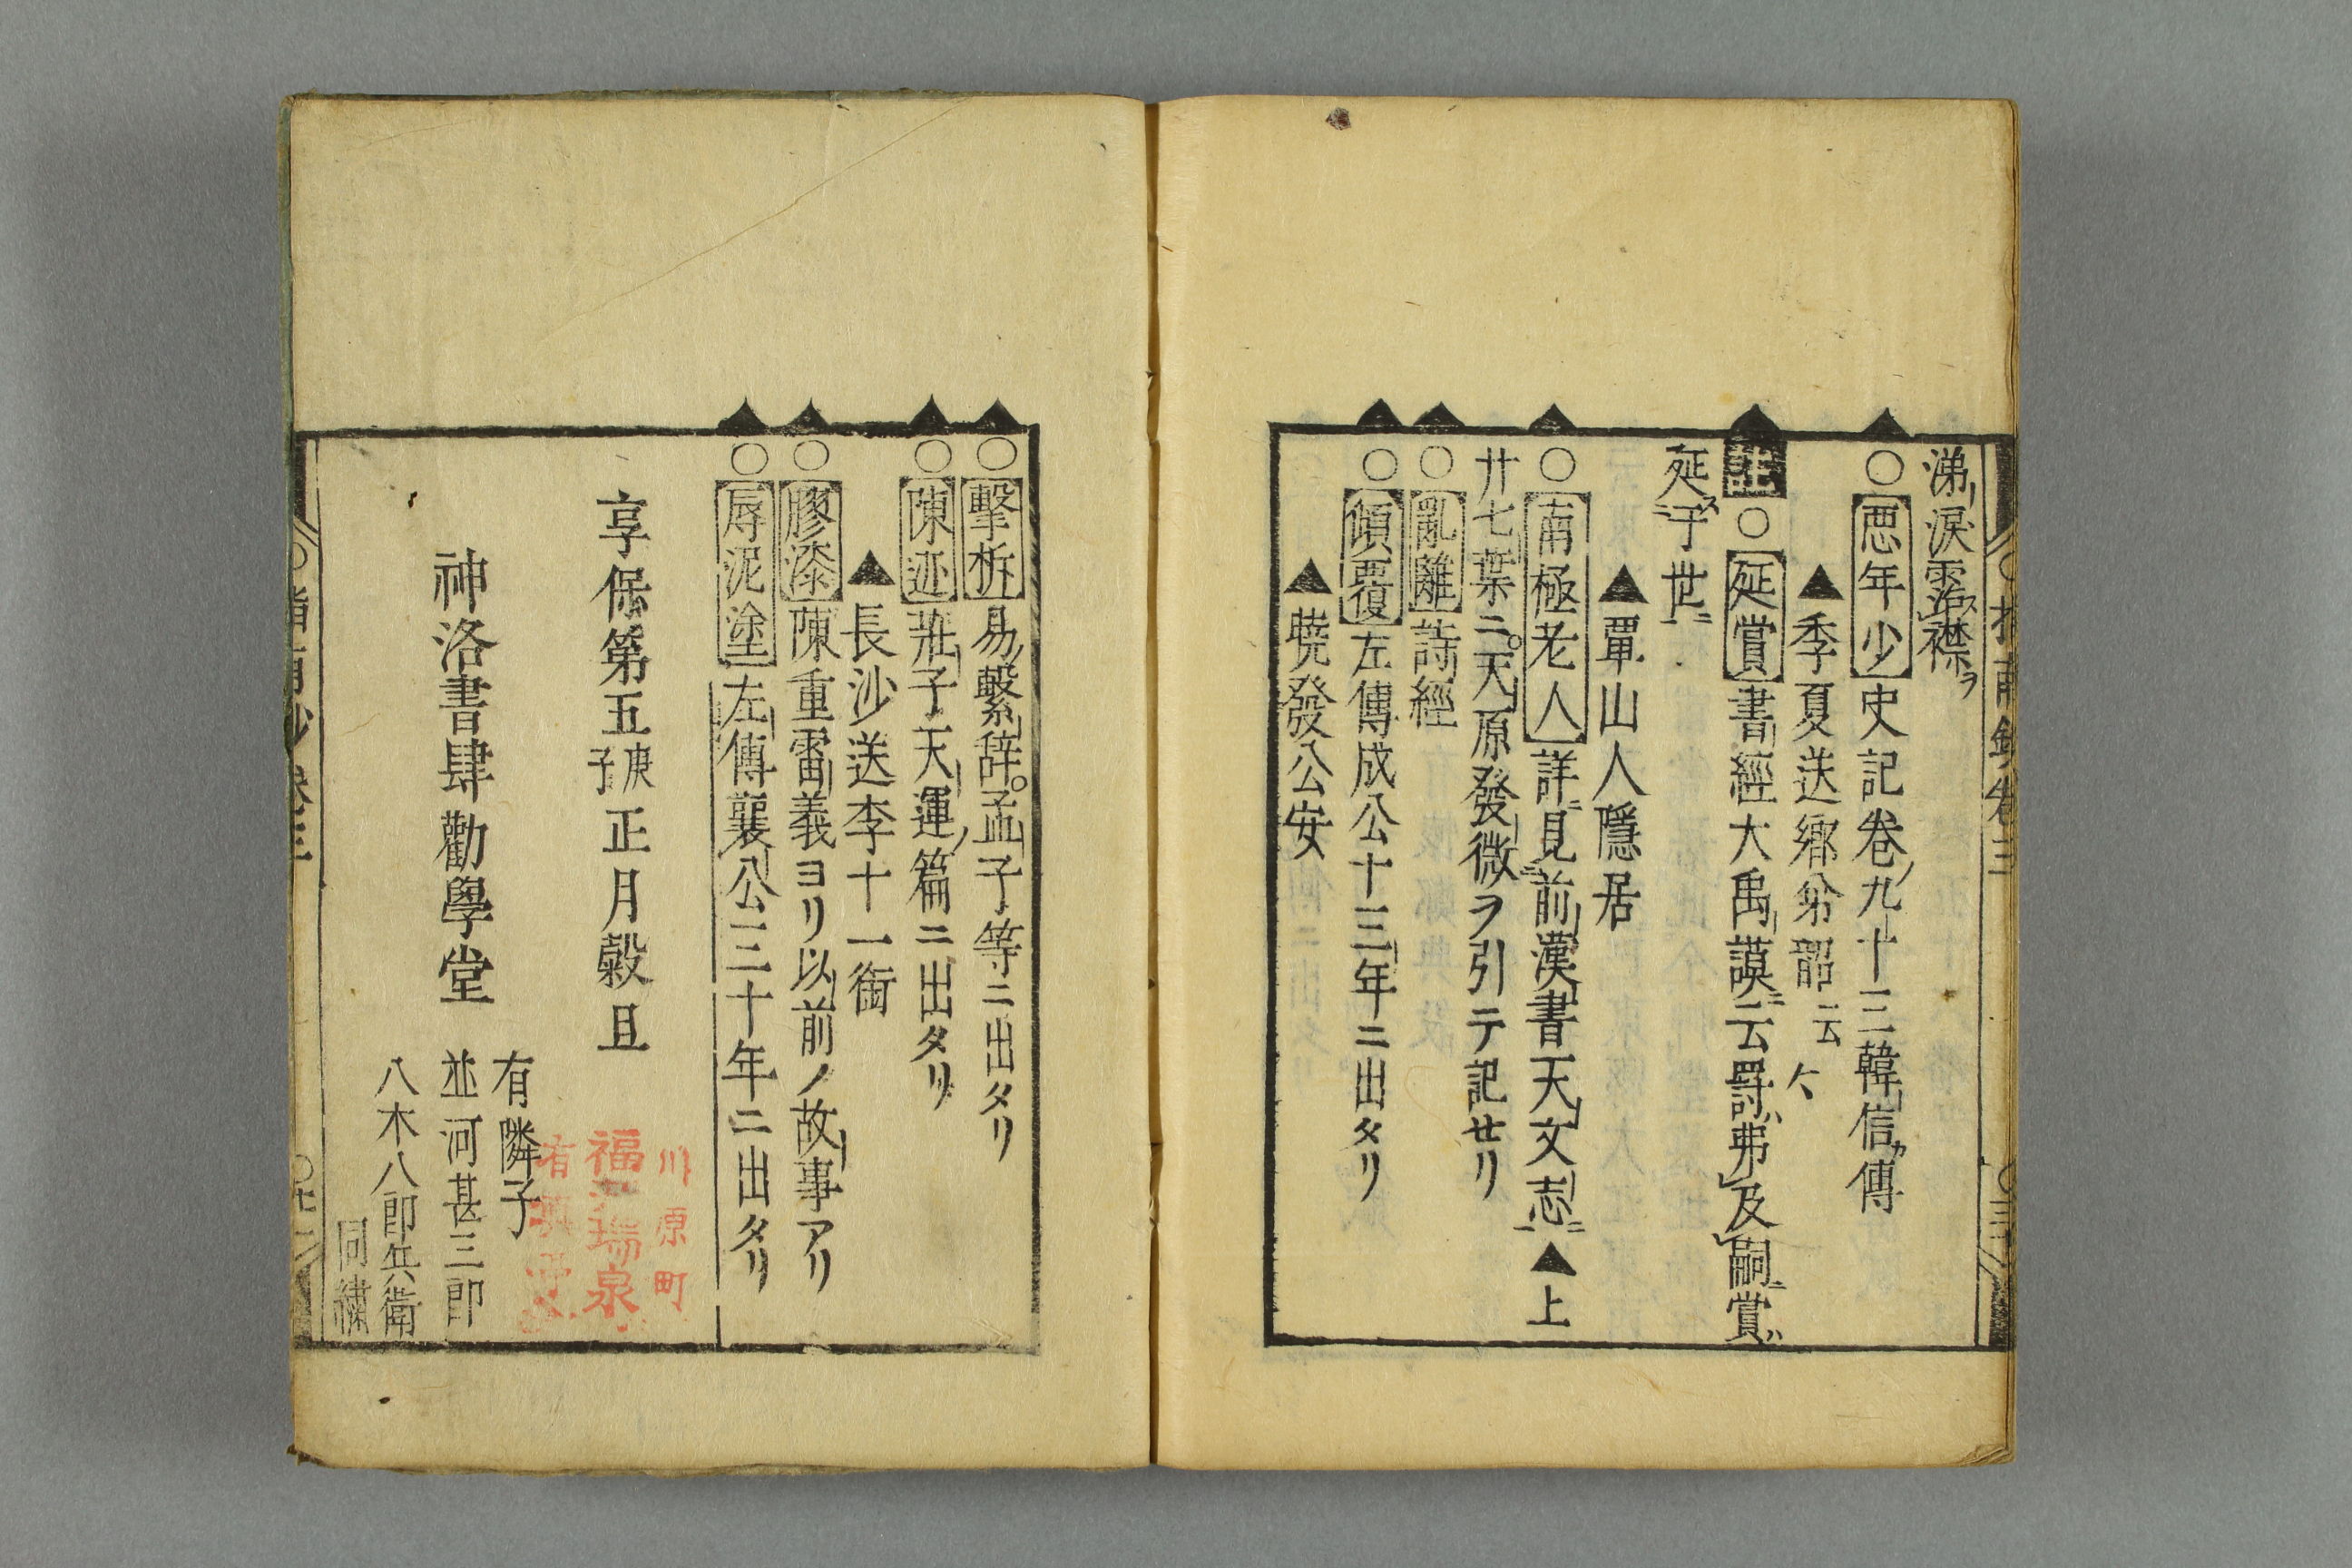 涕涙霑襟ヲ
○悪年少史記巻ノ九十三韓信カ傳
▲季夏送郷弟韶云云
註○延賞書經大禹謨ニ云罸弗及嗣ニ賞ハ
延于世ニ
▲覃山人隱居
○南極老人詳見前漢書天文志▲上
廿七葉ニ天原發微ヲ引テ記セリ
○亂離詩經
○傾覆左傳成公十三年ニ出タリ
▲暁發公安
○擊柝易ノ繫辞孟子等ニ出タリ
○陳迹莊子天運ノ篇ニ出タリ
▲長沙送李十一銜
○膠漆陳重雷義ヨリ以前ノ故事アリ
○辱泥塗左傳襄公三十年ニ出タリ
享保第五庚子正月穀旦
神洛書肆勸學堂
有隣子
並河甚三郎
八木八郎兵衛
同繍
川原町
福瑞泉